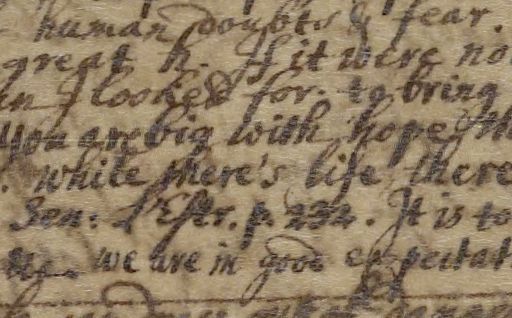 human doubts & fear.
great h. If it were not
in I looked for. to bring
You are big with hope th
. while there's life there
Sen: L'Estr. p. 232. It is to
we are in good expectat